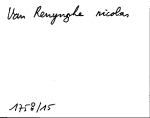 Van Renynghe nicolas
1758/15